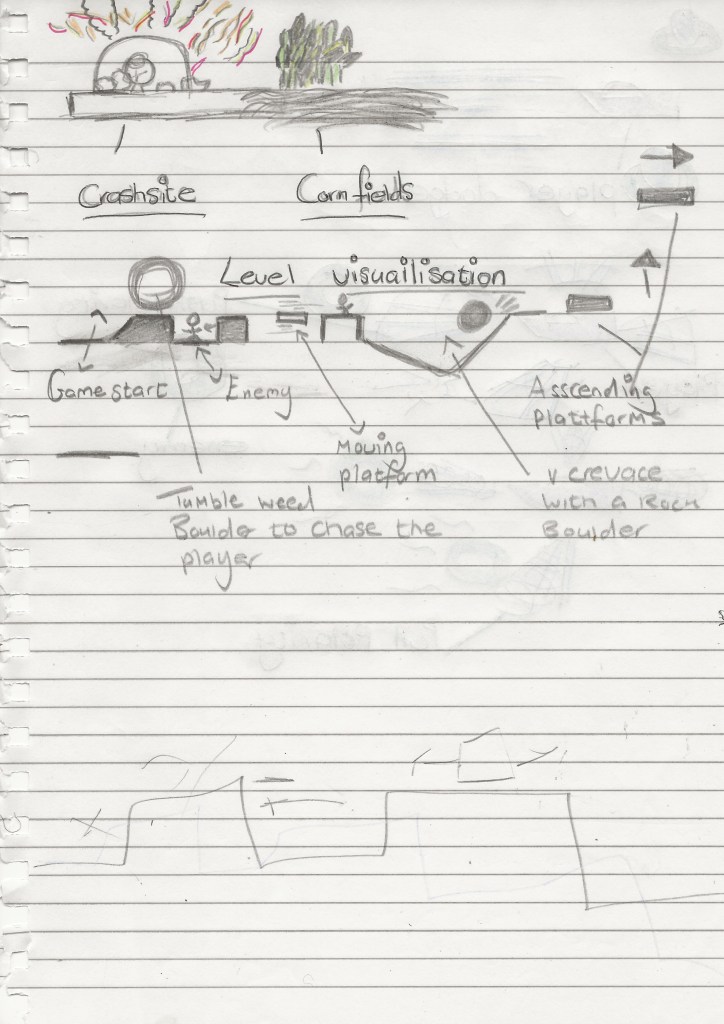 Crashsite
Cornfields
Level visuailisation
Game start
Enemy
Moving
platform
Asscending
plattforms
Tumble weed
Boulder to chase the
player
v crevace
with a Rock
Boulder